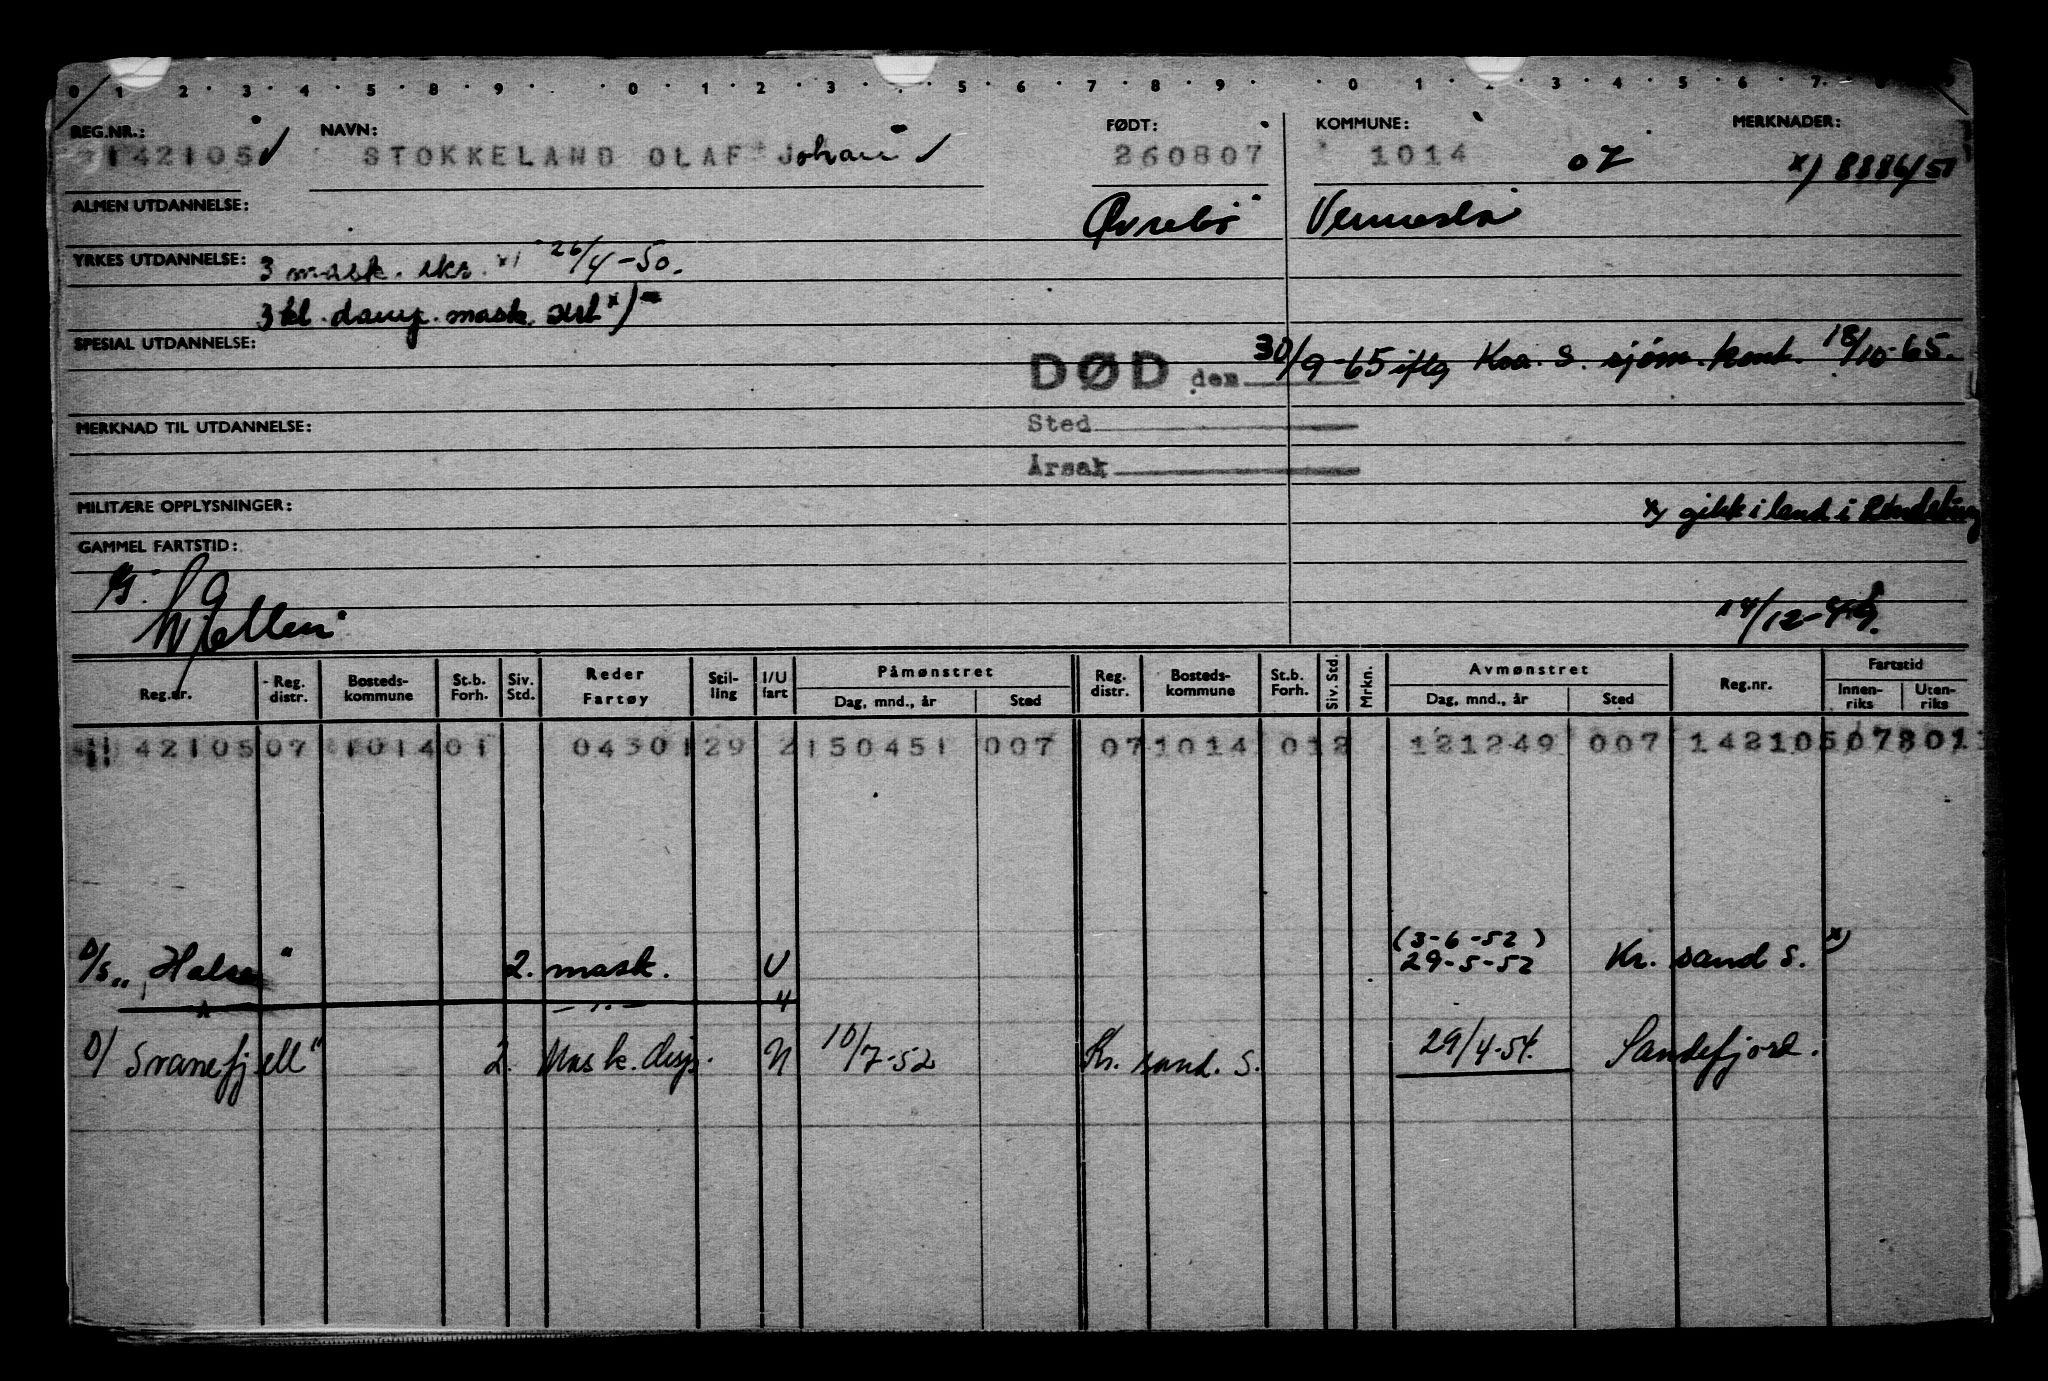 0 1 2 3 4 5 8 9 0 1 2 3 5 6 7 8 9 0 1 2 3 4 5 6 7
REG.NR.: NAVN: FØDT: KOMMUNE: MERKNADER:
142105 STOKKELAND OLAF Johan 260807 1014 07 x) 8886/51
ALMEN UTDANNELSE: Øvrebö Vennesla
YRKES UTDANNELSE: 3 mask. skr. x) 26/4-50.
3 kl. damp. mask. x)
SPESIAL UTDANNELSE:
DØD den 30/9-65 iflg Kra. S. sjøm. kont. 18/10-65.
Sted
MERKNAD TIL UTDANNELSE:
Årsak
MILITÆRE OPPLYSNINGER: x) gikk i land i
GAMMEL FARTSTID:
14/12-49.
Reg.nr. Reg. distr. Bosteds-kommune St.b. Forh. Siv. Std. Reder Fartøy Stil-ling I/U fart Påmønstret Dag, mnd., år Sted Reg. distr. Bosteds-kommune St.b. Forh. Siv. Std. Mrkn. Avmønstret Dag, mnd., år Sted Reg.nr. Fartstid Innen-riks Uten-riks
42105 07 1014 01 04301 29 2 150451 007 07 1014 012 121249 007 142105 073011
(3-6-52)
D/S „Halse" 2. mask. U 29-5-52 Kr. sand S. x)
D/ Svanefjell" 2. Mask. disp. N 10/7-52 Kr. sand. S. 29/4-54. Sandefjord.